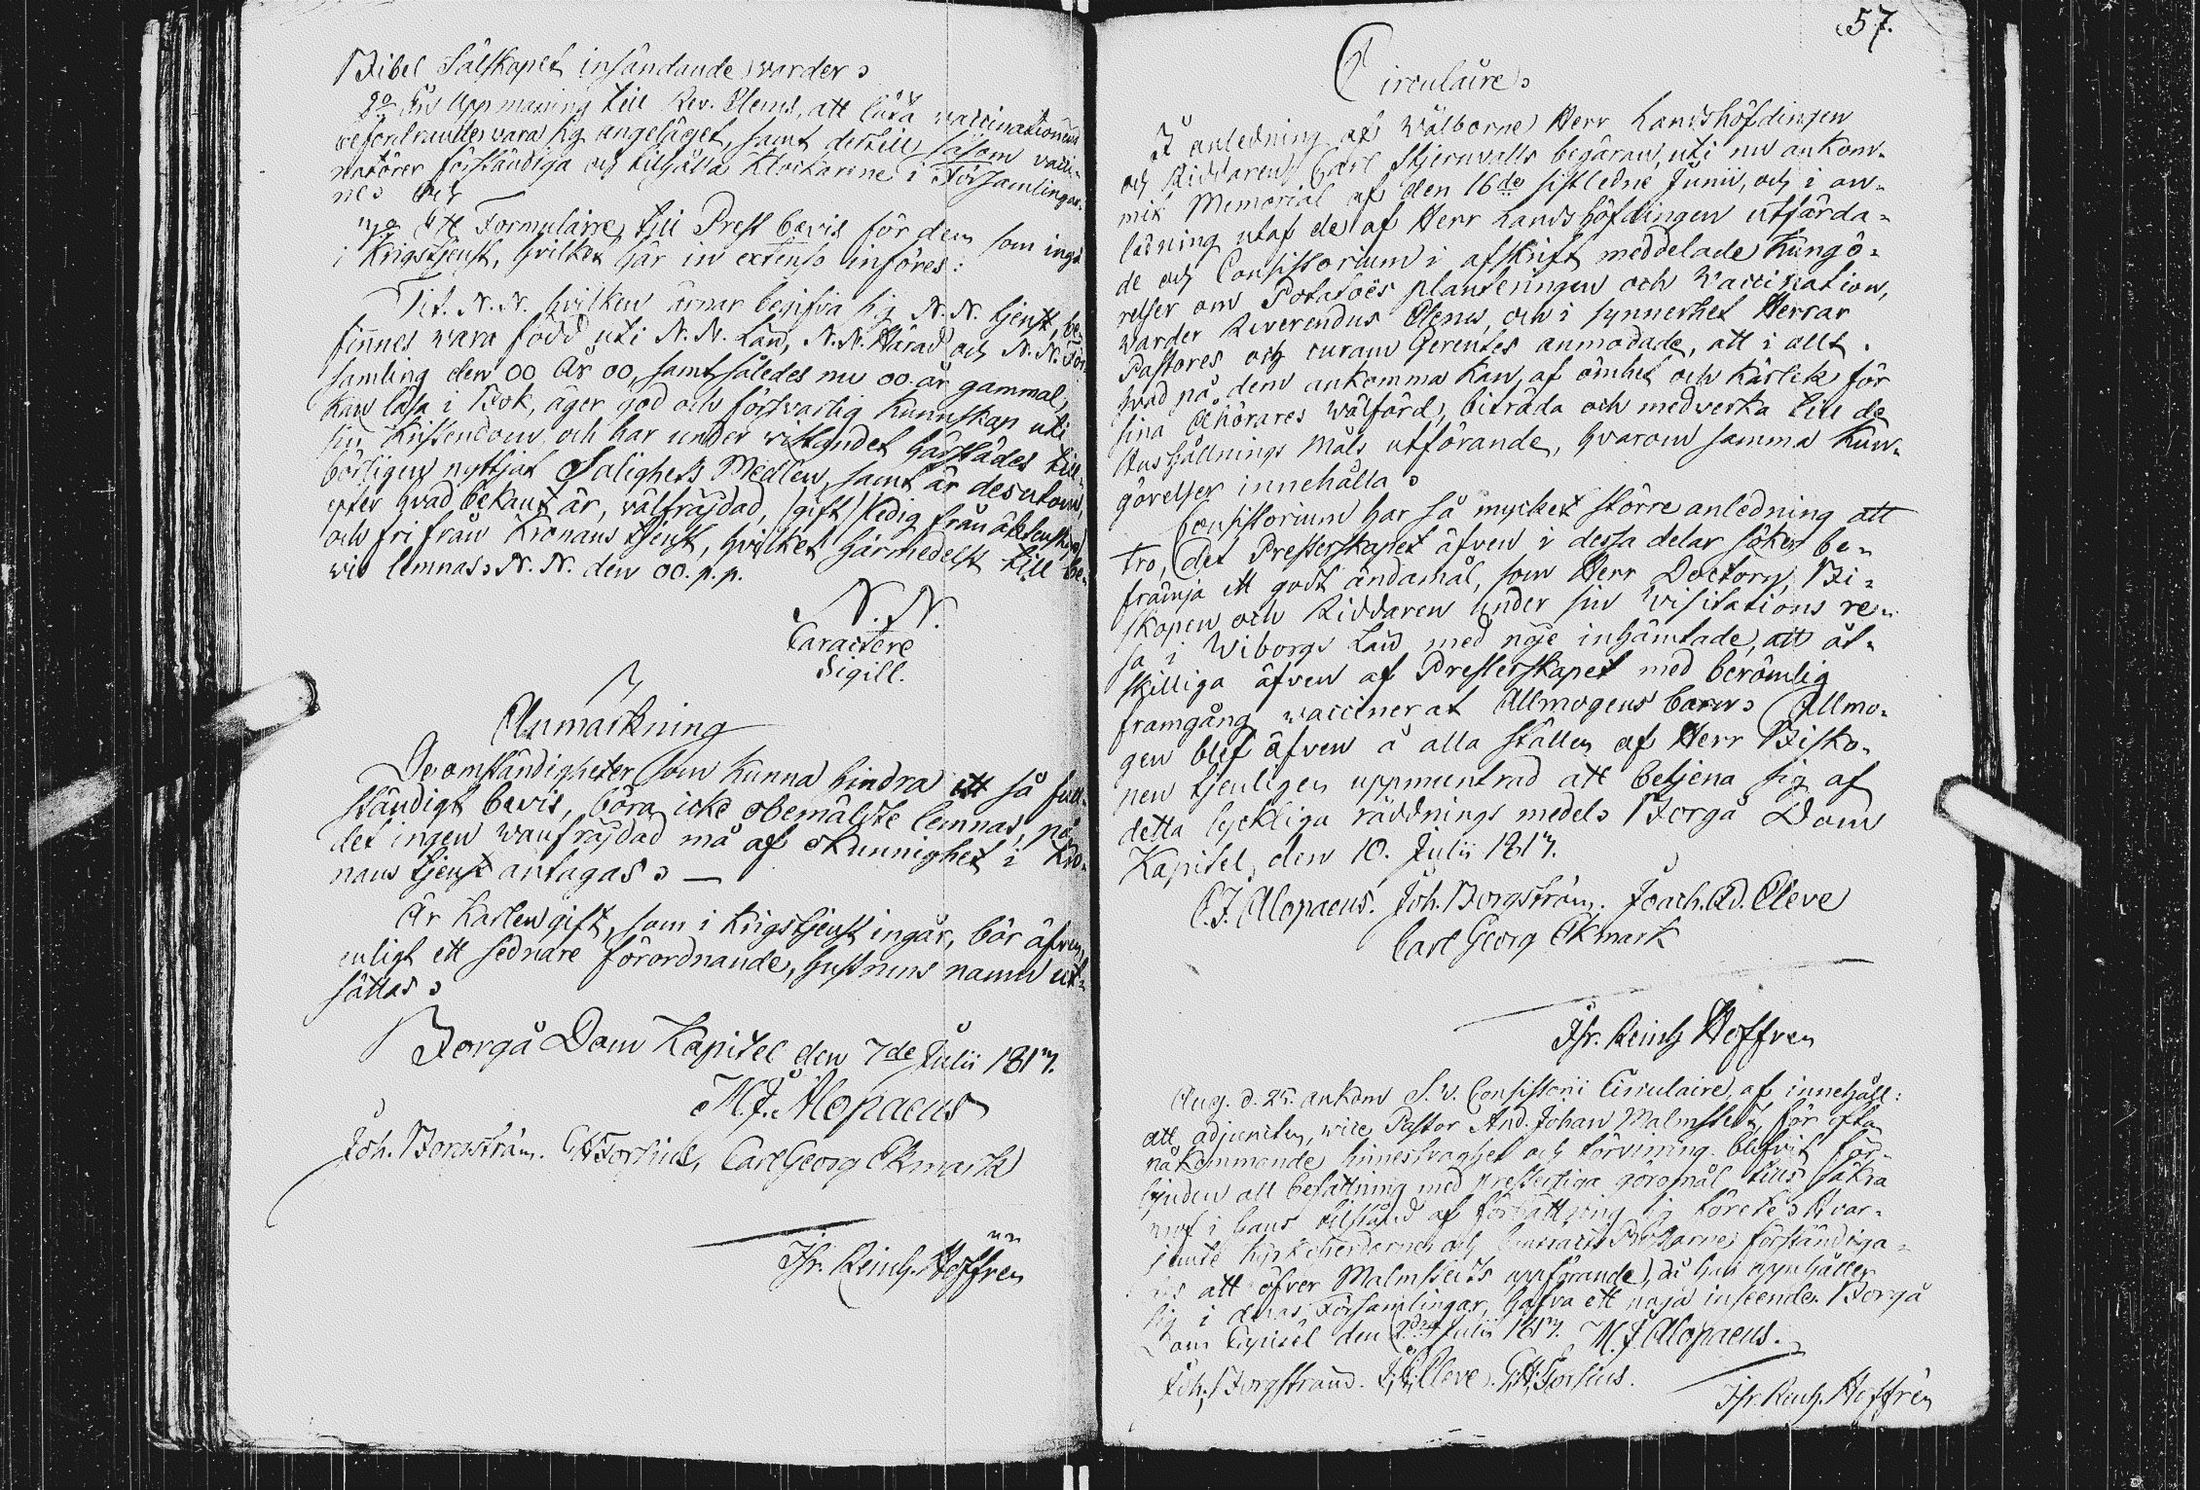 Bibel Sälskapet insändande warder.
2o En Uppmaning till Rev. Clerus, att låta vaccinationens
befordrande vara sig angeläget, samt dertill såsom vacci-
natörer förständiga och tillhålla Klockarene i Församlingar-
ne. Och
Ett Formulaire till Prest bevis för dem som ingå
i Krigstjenst, hvilket här in extenso införes:
Tit. N. N. hvilken ärnar begifva sig N. N. tjenst, be-
finnes wara född uti N. N. Län, N. N. Härad och N. N. För-
samling den 00 År 00, samt således nu 00 år gammal,
kan läsa i Bok, äger god och försvarlig kunnskap uti
sin Kristendom, och har under vistandet härstädes till-
börligen nyttjat Salighets Medlen, samt är desutom,
efter hvad bekant är, välfräjdad, (gift) ledig från äktenskap,
och fri från Kronans tjenst, hvilket härmedelst till be-
vis lemnas. N. N. den 00. p. p.
N. N.
Caractere
Sigill.
Anmärkning
De omständigheter som kunna hindra ett så full-
ständigt bevis, böra icke obemälte lemnas, på
det ingen vanfräjdad må af okunnighet i Kro-
nans tjenst antagas. —
Är Karlen gift, som i krigstjenst ingår, bör äfven,
enligt ett sednare förordnande, hustruns namn ut-
sättas.
Borgå Dom Kapitel den 7de Julii 1817.
M. J. Alopaeus
Joh. Borgström. G H Forsius, Carl Georg Ekmark
Joh. Reinh. Hoffren
57.
Circulaire.
I anledning af Wälborne Herr Landshöfdingen
och Riddaren Carl Stjernvalls begäran, uti nu ankom-
mit Memorial af den 16de sistledne Junii, och i an-
ledning utaf de af Herr Landshöfdingen utfärda-
de och Consistorium i afskrift meddelade Kungö-
relser om Potatoës planteringen och Vaccination,
warder Reverendus Clerus, och i synnerhet Herrar
Pastores och curam Gerentes anmodade, att i allt
hvad på dem ankomma kan, af ömhet och kärlek för
sina Åhörares wälfärd, biträda och medverka till de
Hushållnings Måls utförande, hvarom samma Kun-
görelser innehålla.
Consistorium har så mycket större anledning att
tro, det Presterskapet äfven i dessa delar söker be-
främja ett godt ändamål, som Herr Doctorn, Bi-
skopen och Riddaren under sin Visitations re-
sa i Wiborgs Län med nöje inhämtade, att åt-
skilliga äfven af Presterskapet med berömlig
framgång vaccinerat Allmogens barn. Allmo-
gen blef äfven å alla ställen af Herr Bisko-
pen tjenligen uppmuntrad att betjena sig af
detta lyckliga räddnings medel. Borgå Dom
Kapitel, den 10. Julii 1817.
C. J. Alopaeus. Joh. Borgström. Joach. Ad. Cleve
Carl Georg Ekmark
Joh. Reinh Hoffren
Aug. d. 25. ankom S. v. Consistorii Circulaire, af innehåll:
att adjuncten, vice Pastor And. Johan Malmstedt, för ofta
påkommande sinnessvaghet och förvirring blifvit för-
bjuden all befattning med presterliga göromål tills säkra
prof i hans tillstånd af förbättring sig förete. Hvar-
jemte Kyrkoherdarne och förständiga-
des att öfver Malmstedts uppförande, då han uppehåller
sig i deras Församlingar, hafva ett noga inseende. Borgå
Dom Capitel den Julii 1817. M. J. Alopaeus.
Joh. Borgström. J. A. Cleve. G. H. Forsius.
Joh. Reinh. Hoffrén